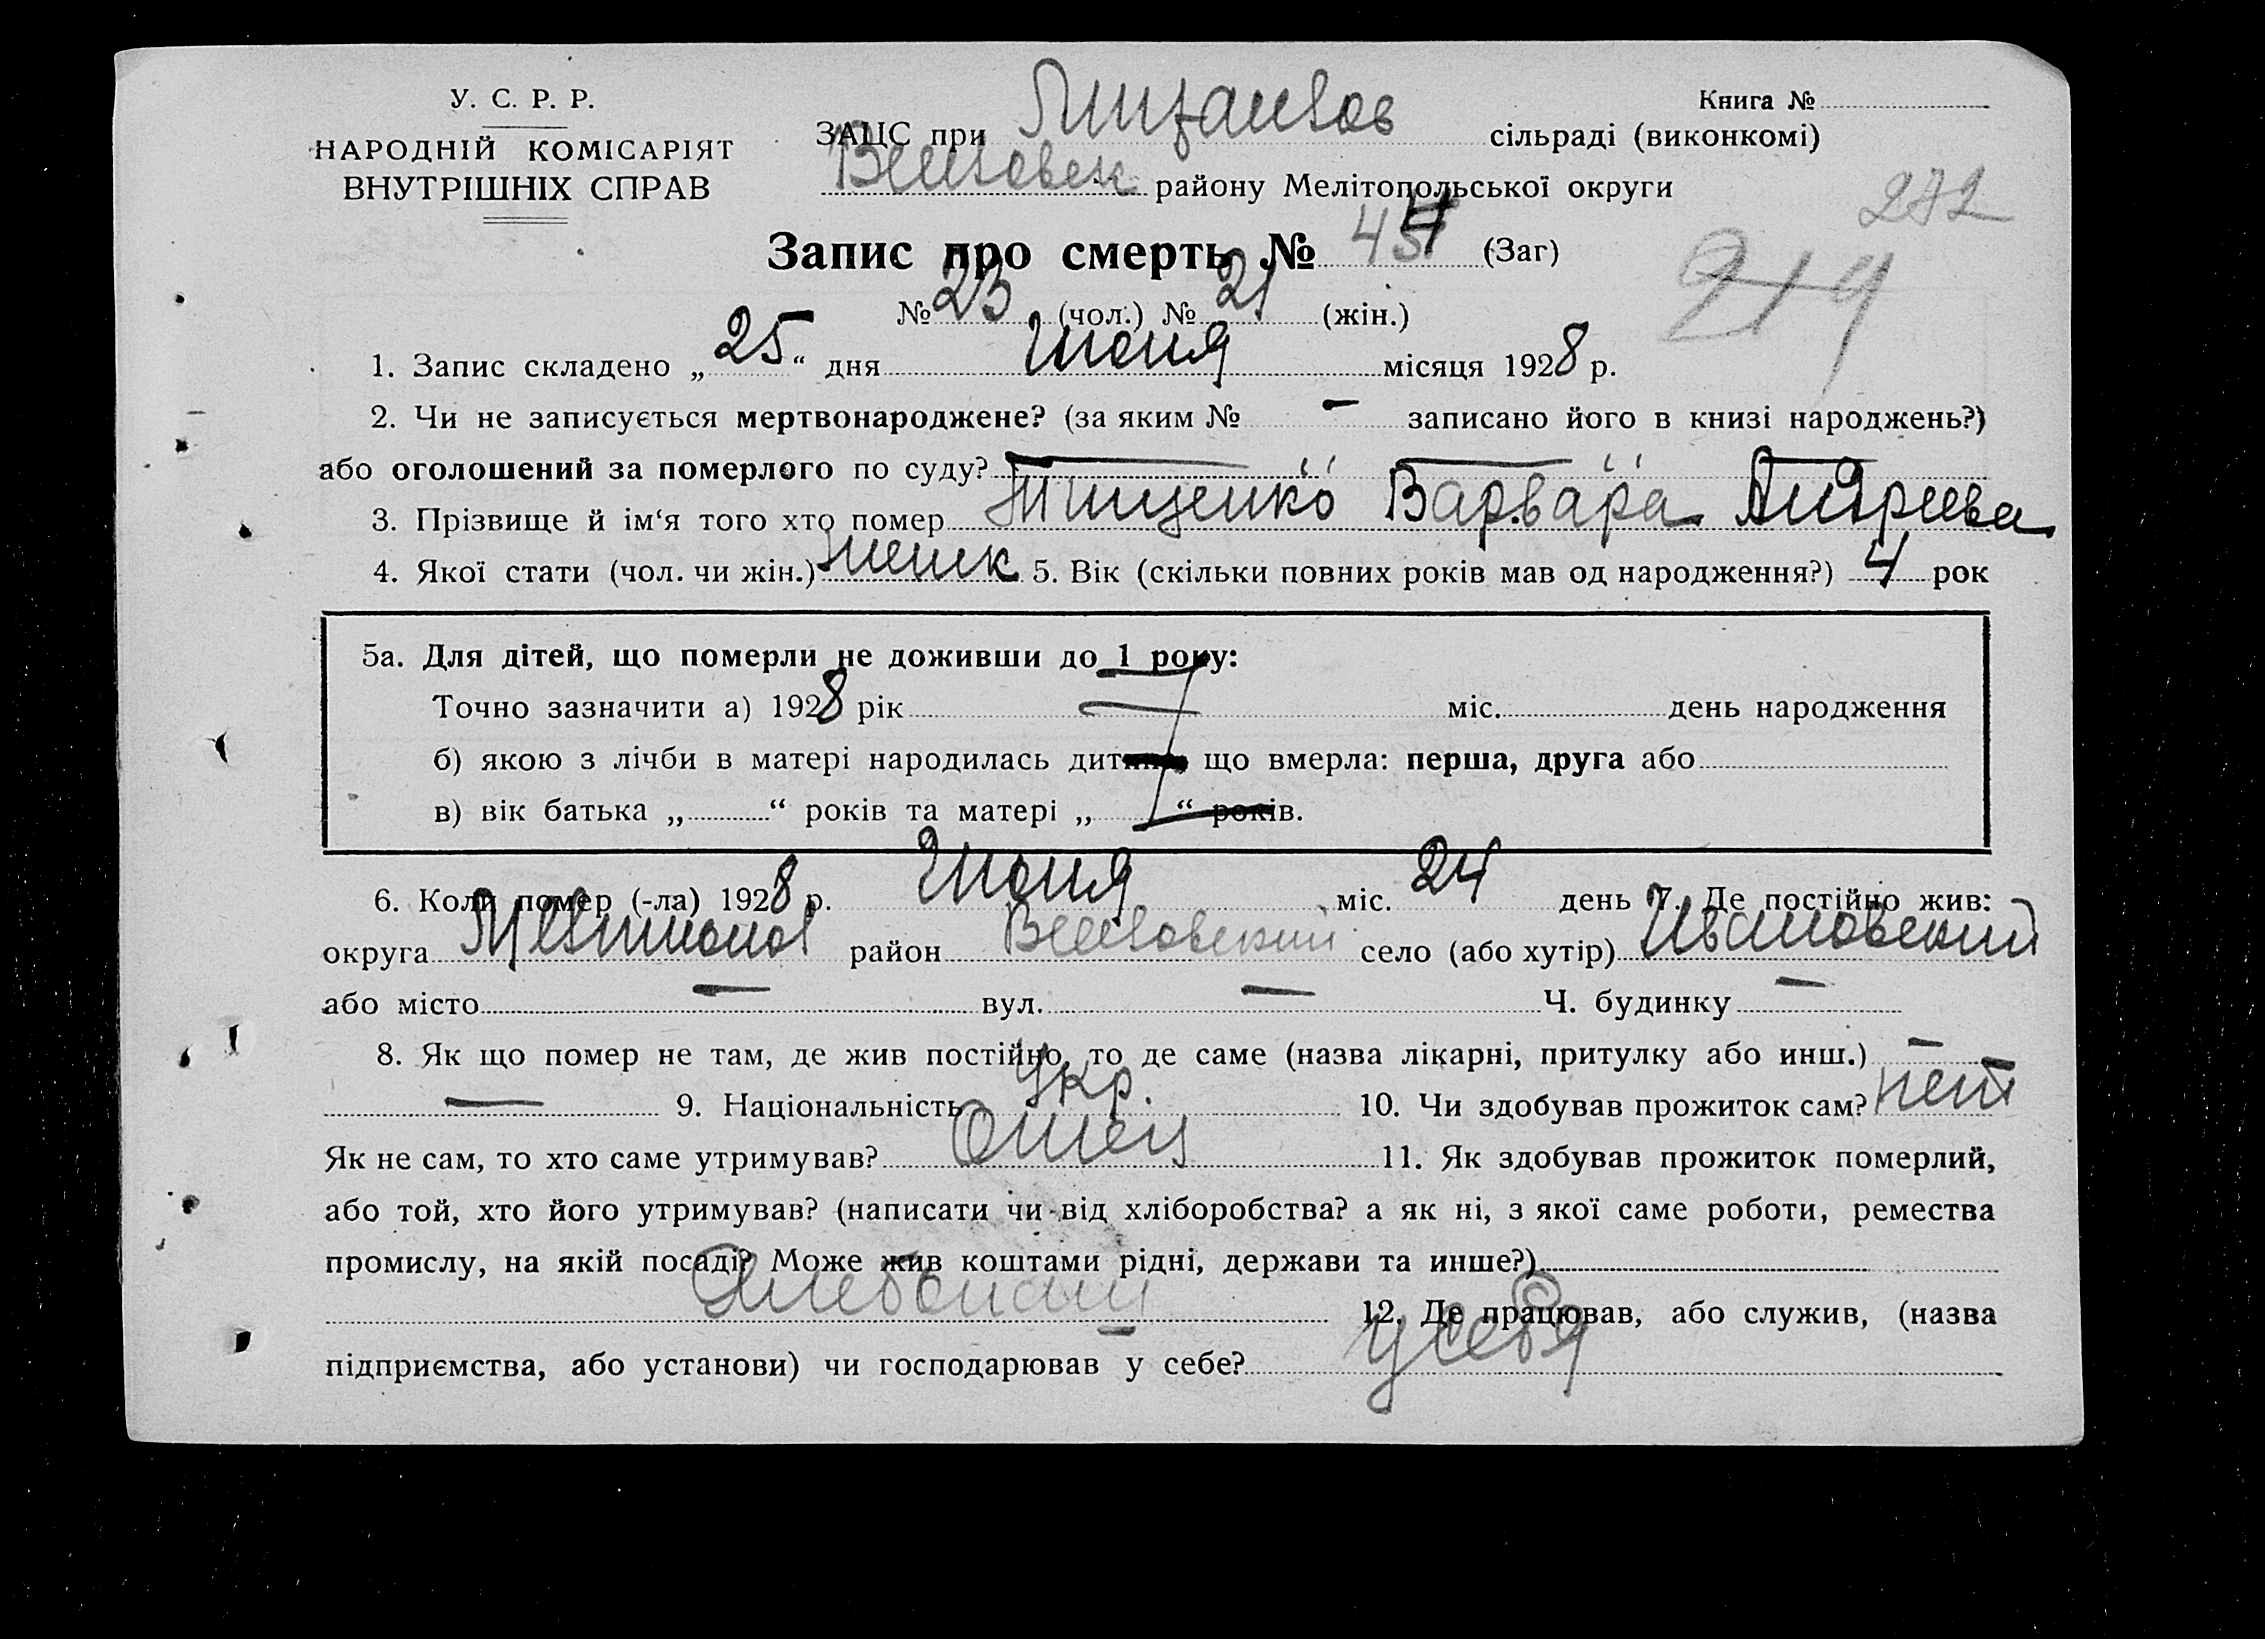 У. С. Р. Р.
НАРОДНІЙ КОМІСАРІЯТ
ВНУТРІШНІХ СПРАВ
Книга №
ЗАЦС при сільраді (виконкомі)
району Мелітопольської округи
272
219
Запис про смерть № 44 (Заг)
№ 23 (чол.) № 21 (жін.)
1. Запис складено „ 25 “ дня Июня місяця 1928 р.
2. Чи не записується мертвонароджене? (за яким № — записано його в книзі народжень?)
або оголошений за померлого по суду? — — —
3. Прізвище й ім‘я того хто помер Тищенко Варвара Андреева
4. Якої стати (чол. чи жін.) женск 5. Вік (скільки повних років мав од народження?) 4 рок
5а. Для дітей, що померли не доживши до 1 року:
Точно зазначити а) 1928 рік міс. день народження
б) якою з лічби в матері народилась дитина, що вмерла: перша, друга або
в) вік батька „ “ років та матері „ “ років.
6. Коли помер (-ла) 1928 р. Июня міс. 24 день 7. Де постійно жив:
округа район Веселовский село (або хутір) Ивановский
або місто — вул. — Ч. будинку —
8. Як що помер не там, де жив постійно, то де саме (назва лікарні, притулку або инш.) —
— 9. Національність Укр. 10. Чи здобував прожиток сам? нет
Як не сам, то хто саме утримував? Отец 11. Як здобував прожиток померлий,
або той, хто його утримував? (написати чи від хліборобства? а як ні, з якої саме роботи, ремества
промислу, на якій посаді? Може жив коштами рідні, держави та инше?)
Хлебопаш 12. Де працював, або служив, (назва
підприємства, або установи) чи господарював у себе? у себя